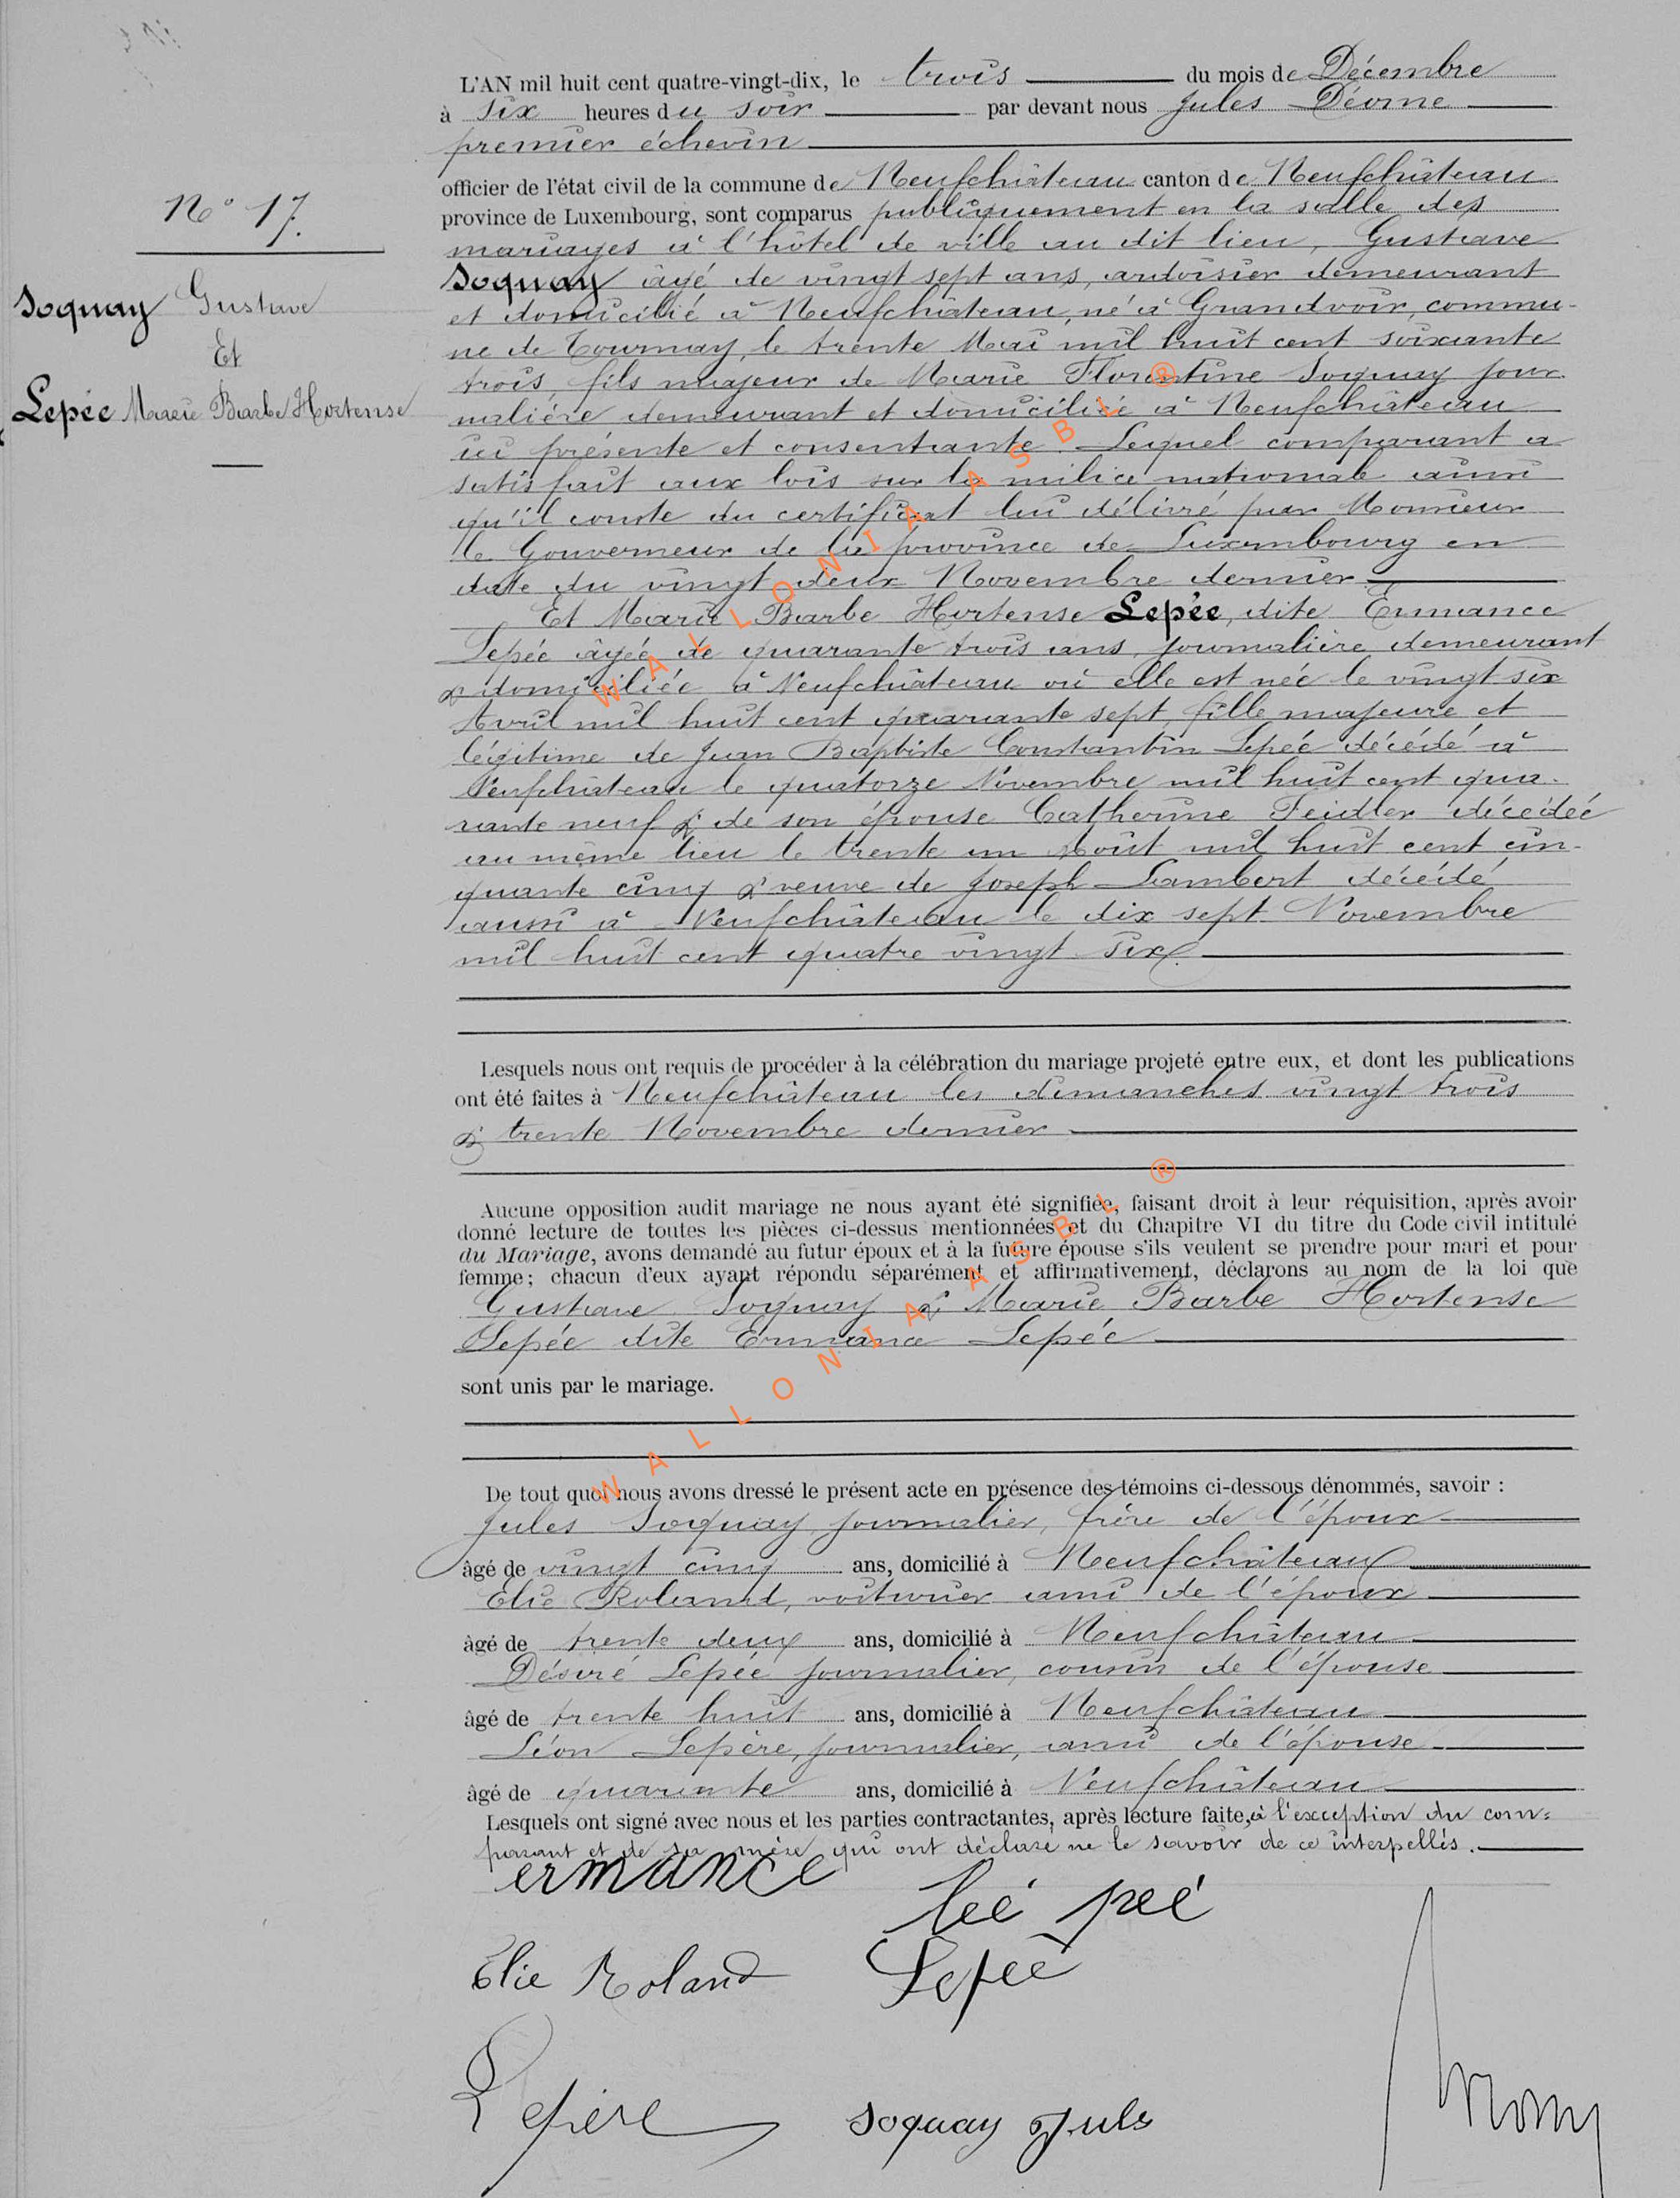 N° 17.
Soquay Gustave
Et
Lepée Marie Barbe Hortense
L'AN mil huit cent quatre-vingt-dix, le trois du mois de Décembre
à six heures du soir par devant nous Jules Déome
premier échevin
officier de l'état civil de la commune de Neufchâteau canton de Neufchâteau
province de Luxembourg, sont comparus publiquement en la salle des
mariages à l'hôtel de ville au dit lieu, Gustave
Soquay âgé de vingt sept ans, ardoisier demeurant
et domicilié à Neufchâteau, né à Grandvoir, commu-
ne de Tournay, le trente Mai mil huit cent soixante
trois, fils majeur de Marie Florentine Soquay jour
nalière demeurant et domiciliée à Neufchâteau
ici présente et consentante. Lequel comparant a
satisfait aux lois sur la milice nationale ainsi
qu'il conste du certificat lui délivré par Monsieur
le Gouverneur de la province de Luxembourg en
date du vingt deux Novembre dernier
Et Marie Barbe Hortense Lepée, dite Ermance
Lepée âgée de quarante trois ans, journalière demeurant
& domiciliée à Neufchâteau où elle est née le vingt six
Avril mil huit cent quarante sept, fille majeure et
légitime de Jean Baptiste Constantin Lepée décédé à
Neufchâteau le quatorze Novembre mil huit cent qua-
rante neuf & de son épouse Catherine Feidler décédée
au même lieu le trente un Août mil huit cent cin-
quante cinq & veuve de Joseph Lambert décédé
aussi à Neufchâteau le dix sept Novembre
mil huit cent quatre vingt six.
Lesquels nous ont requis de procéder à la célébration du mariage projeté entre eux, et dont les publications
ont été faites à Neufchâteau les dimanches vingt trois
& trente Novembre dernier
Aucune opposition audit mariage ne nous ayant été signifiée, faisant droit à leur réquisition, après avoir
donné lecture de toutes les pièces ci-dessus mentionnées et du Chapitre VI du titre du Code civil intitulé
du Mariage, avons demandé au futur époux et à la future épouse s'ils veulent se prendre pour mari et pour
femme; chacun d'eux ayant répondu séparément et affirmativement, déclarons au nom de la loi que
Gustave Soquay & Marie Barbe Hortense
Lepée dite Ermance Lepée
sont unis par le mariage.
De tout quoi nous avons dressé le présent acte en présence des témoins ci-dessous dénommés, savoir :
Jules Soquay journalier, frère de l'époux
âgé de vingt cinq ans, domicilié à Neufchâteau
Elie Roland, voiturier ami de l'époux
âgé de trente deux ans, domicilié à Neufchâteau
Désiré Lepée journalier, cousin de l'épouse
âgé de trente huit ans, domicilié à Neufchâteau
Léon Lepère, journalier, ami de l'épouse
âgé de quarante ans, domicilié à Neufchâteau
Lesquels ont signé avec nous et les parties contractantes, après lecture faite, à l'exception du com=
parant et de sa mère qui ont déclaré ne le savoir de ce interpellés.
ermance
leé peé
Elie Roland
Lepée
Lepère
Soquay Jules
WALLONIA ASBL ®
WALLONIA ASBL ®